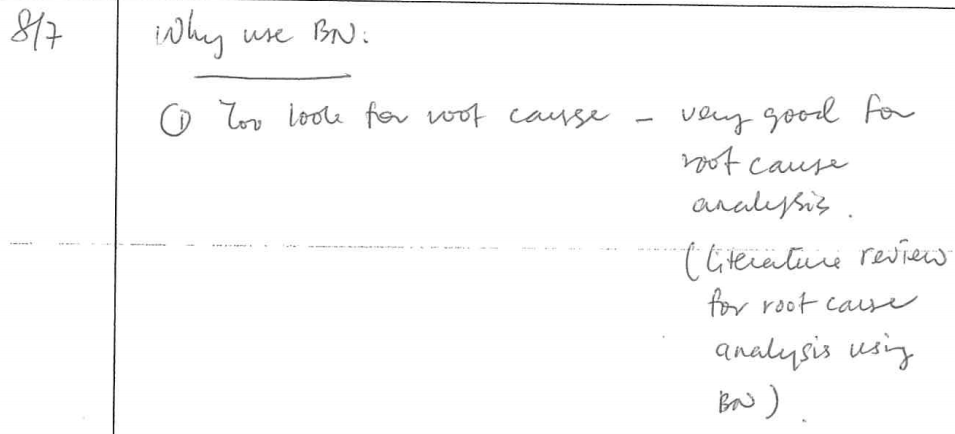 8/7
Why use BN:
① Too look for root cause – very good for
root cause
analysis.
(literature review
for root cause
analysis using
BN).